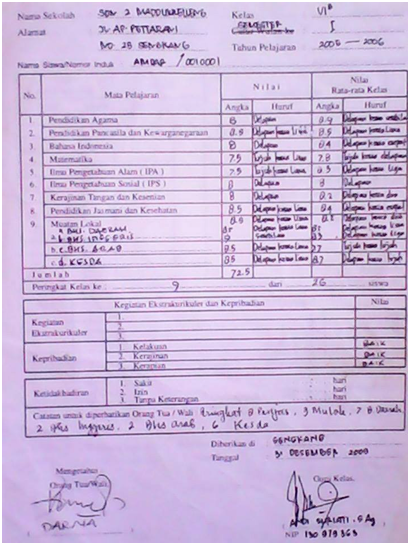 Nama Sekolah SDN 2 MADDUKKELLENG Kelas VI B
Alamat JL. AP. PETTARANI SEMESTER I
NO. 2B SENGKANG Tahun Pelajaran 2005 - 2006
Nama Siswa/Nomor Induk AMBAR /0010001
No. Mata Pelajaran Nilai Nilai Rata-rata Kelas
Angka Huruf Angka Huruf
1. Pendidikan Agama 8 Delapan 8.9
2. Pendidikan Pancasila dan Kewarganegaraan 8.5 8.5 Delapan koma Lima
3. Bahasa Indonesia 8 Delapan 8.4 Delapan koma empat
4. Matematika 7.5 Tujuh koma Lima 7.8 Tujuh koma delapan
5. Ilmu Pengetahuan Alam ( IPA ) 7.5 Tujuh koma Lima 8.3 Delapan koma tiga
6. Ilmu Pengetahuan Sosial ( IPS ) 8 Delapan 8 Delapan
7. Kerajinan Tangan dan Kesenian 8 Delapan 8.2 Delapan koma dua
8. Pendidikan Jasmani dan Kesehatan 8.5 Delapan koma Lima 8.4 Delapan koma empat
9. Muatan Lokal
a. BHS. DAERAH
b. BHS. INGGRIS 9
c. BHS. ARAB 8.5 Delapan koma Lima 7.7 Tujuh koma Tujuh
d. KESDA 8.5 Delapan koma Lima
Jumlah 72.5
Peringkat Kelas ke 9 dari 26 siswa
Kegiatan Ekstrakurikuler dan Kepribadian Nilai
Kegiatan Ekstrakurikuler 1.
2.
3.
Kepribadian 1. Kelakuan BAIK
2. Kerajinan BAIK
3. Kerapian BAIK
Ketidakhadiran 1. Sakit : hari
2. Izin : hari
3. Tanpa Keterangan : hari
Catatan untuk diperhatikan Orang Tua / Wali
2 Bhs Inggris, 2 Bhs arab, 6 Kesda
Diberikan di SENGKANG
Tanggal 31 DESEMBER
Mengetahui
Orang Tua/Wali Guru Kelas,
DARNA
NIP 130 979 363